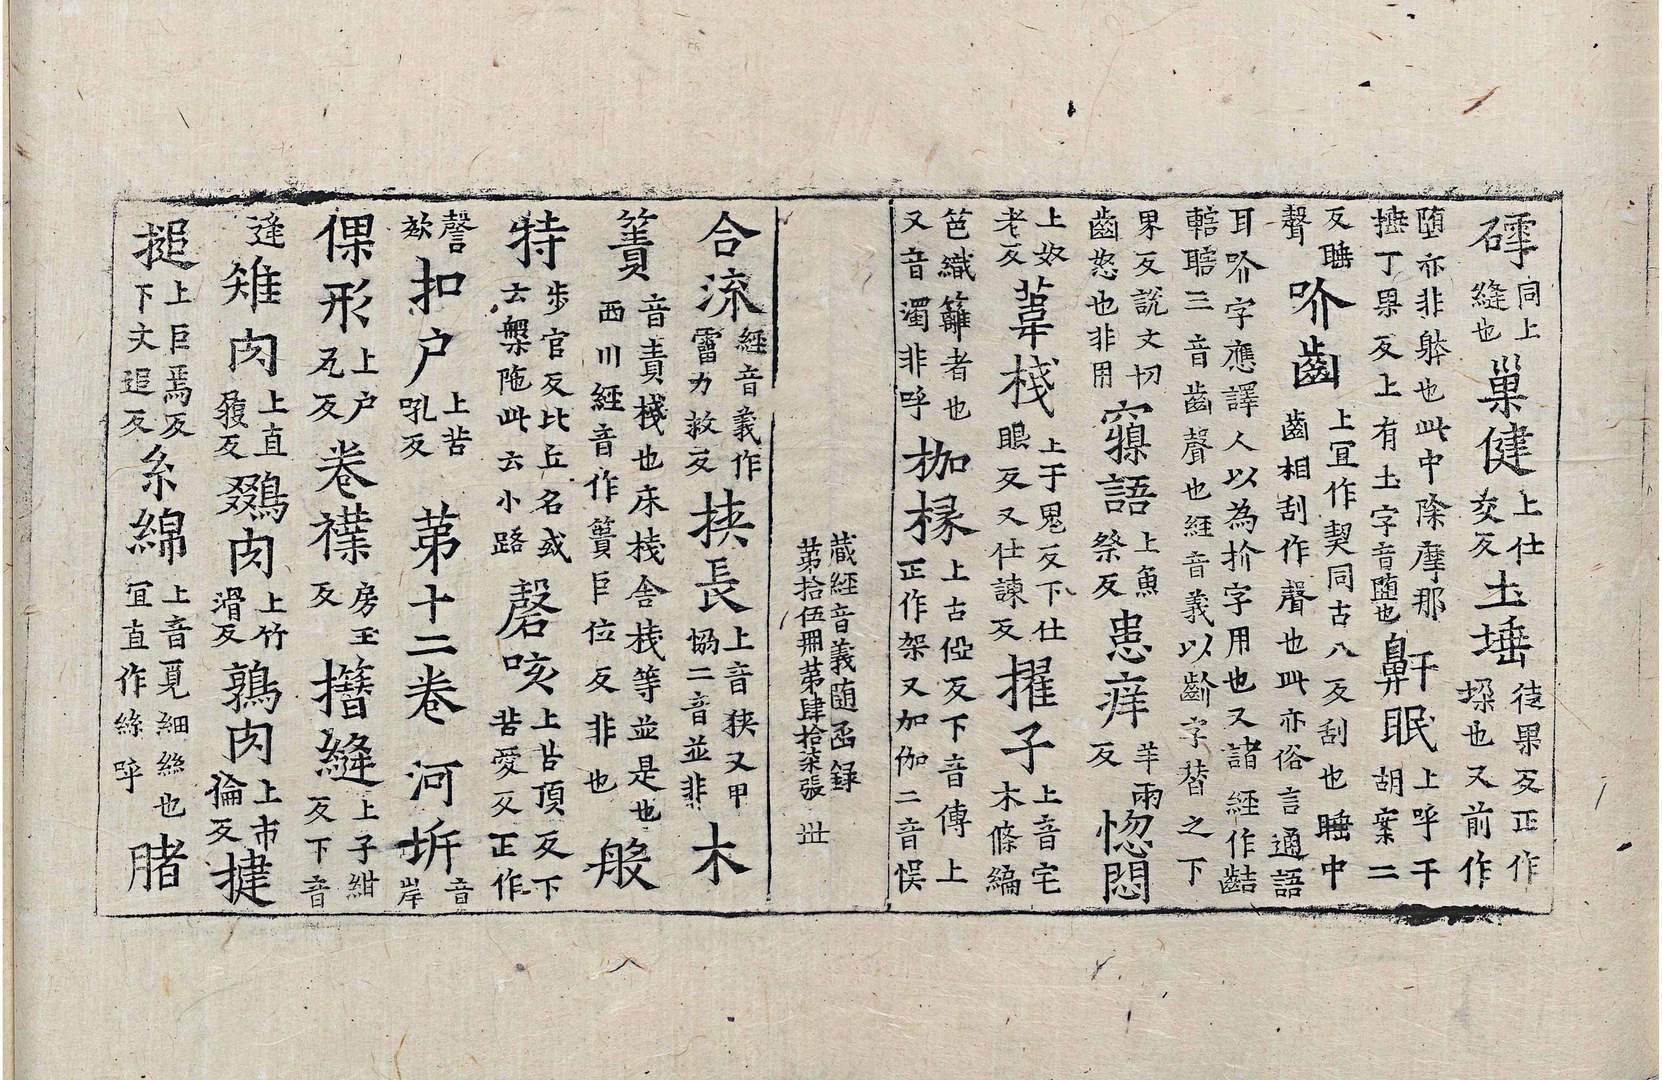 𥓓同上縫也巢健上仕交反土埵徒果反正作垜也又前作
墮亦非躰也此中除摩那𢴤丁果反上有土字音隨也鼾眠上呼干胡案二
反睡聲吤齒上宜作契同古八反刮也睡中齒相刮作聲也此亦俗言通語
耳吤字應譯人以為扴字用也又諸經作齘轄瞎三音齒聲也經音義以齡字替之下
界反說文切齒怒也非用寱語上魚祭反患痒羊兩反惚悶
上奴老反葦棧上于鬼反下仕眼反又仕諫反擢子上音宅木條編
笆織籬者也又音濁非呼枷椽上古俹反下音傳上正作架又加伽二音悮
藏經音義随函録
第拾伍冊第肆拾柒張 丗
合流經音義作霤力救反挾長上音狹又甲協二音並非木
簀音責棧也床棧舍棧等並是也西川經音作簣巨位反非也般
特步官反比丘名或云槃陁此云小路磬咳上苦頂反下苦愛反正作
謦欬扣户上苦吼反 第十二卷 河圻音岸
倮形上户瓦反卷襆房玉反撍縫上子紺反下音
逢雉肉上直履反鵽肉上竹滑反鶉肉上市倫反揵
搥上巨焉反下丈追反糸綿上音覓細絲也宜直作絲呼膳